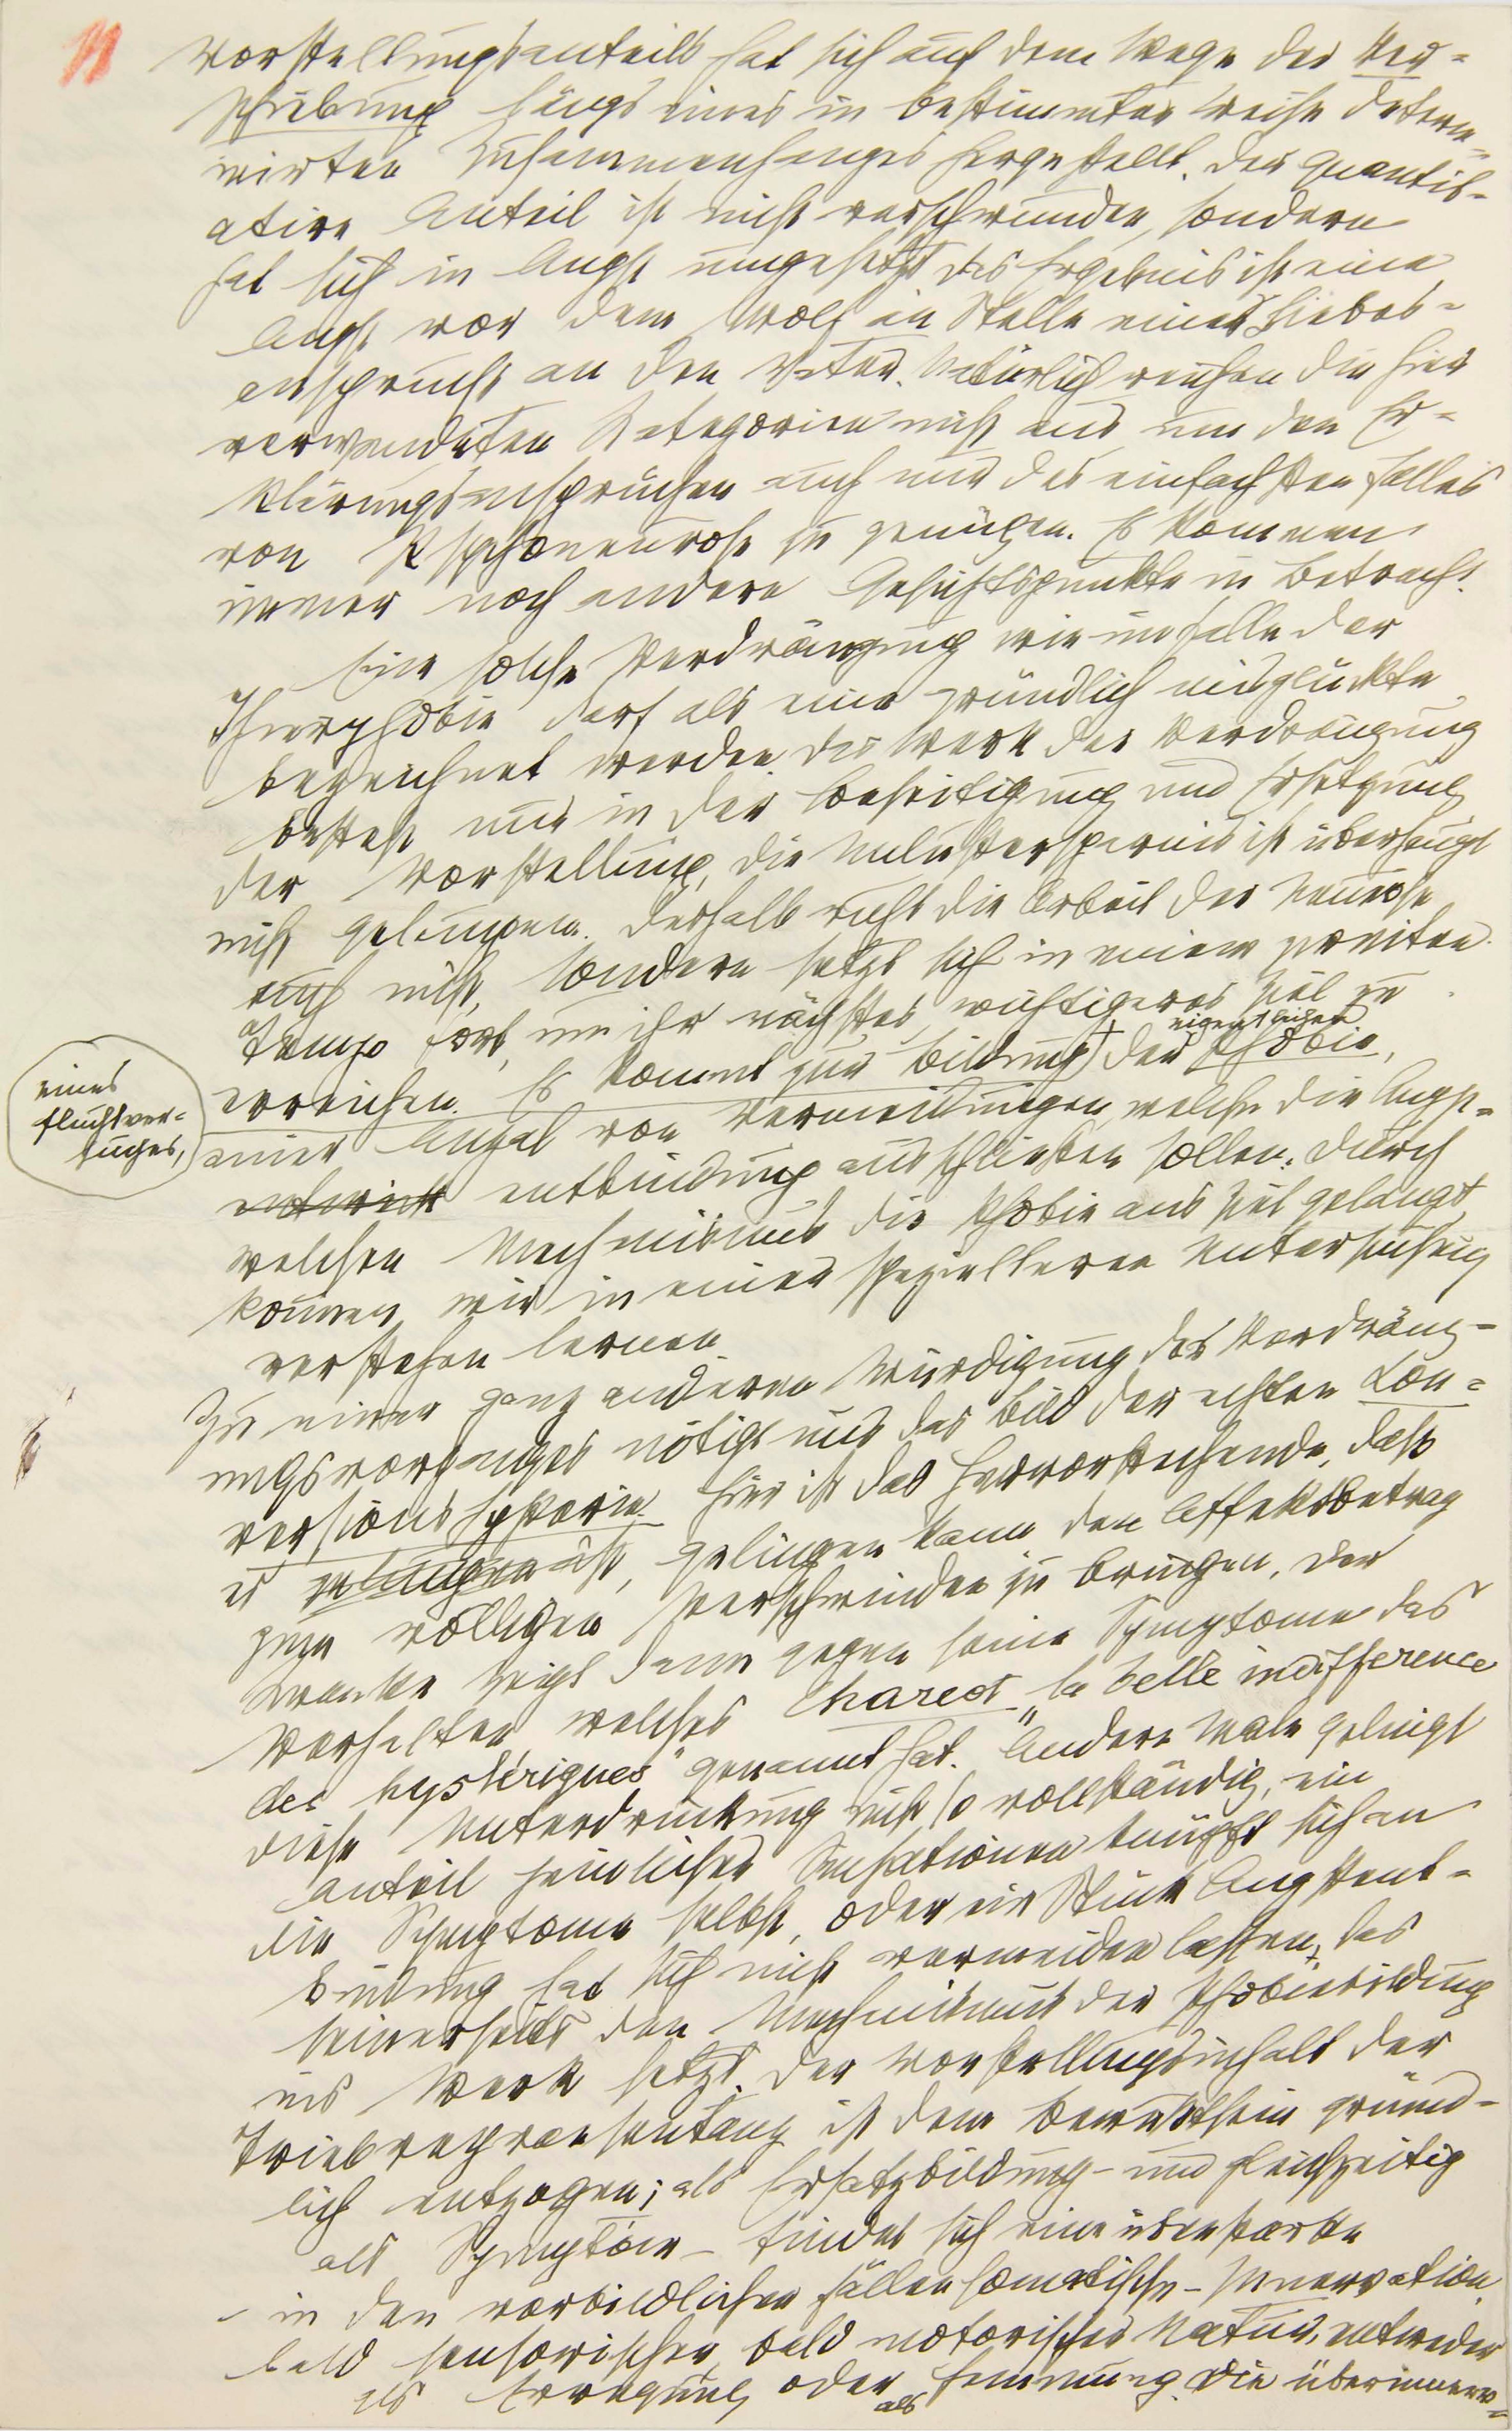 11
Vorstellungsanteils hat sich auf dem Wege der Ver-
schiebung längs eines in bestimmter Weise determi-
nirten Zusammenhanges hergestellt. Der quantit-
ative Anteil ist nicht verschwunden, sondern
hat sich in Angst umgesetzt. Das Ergebnis ist eine
Angst vor dem Wolf an Stelle eines Liebes-
anspruchs an den Vater. Natürlich reichen die hier
verwendeten Kategorien nicht aus um den Er-
klärungsansprüchen auch nur des einfachsten Falles
von Psychoneurose zu genügen. Es kommen
immer noch andere Gesichtspunkte in Betracht.
Eine solche Verdrängung wie im Falle der
Thierphobie darf als eine gründlich misglückte
bezeichnet werden. Das Werk der Verdrängung
besteht nur in der Beseitigung und Ersetzung
der Vorstellung, die Unlustersparnis ist überhaupt
nicht gelungen. Deshalb ruht die Arbeit der Neurose
auch nicht, sondern setzt sich in einem zweiten
Tempo fort, um ihr nächstes, wichtigeres Ziel zu
erreichen. Es kommt zur Bildung + der eigentlichen Phobie,
eines
Fluchtver-
suches,
einer Anzal von Vermeidungen, welche die Angst-
entwickl entbindung ausschließen sollen. Durch
welchen Mechanismus die Phobie ans Ziel gelangt,
können wir in einer spezielleren Untersuchung
verstehen lernen.
Zu einer ganz anderen Würdigung des Verdräng-
ungsvorganges nötigt uns das Bild der echten Kon-
versionshysterie. Hier ist das Hervorstechende, daß
es gelungen ist, gelingen kann den Affektbetrag
zum völligen Verschwinden zu bringen. Der
Kranke zeigt dann gegen seine Symptome das
Verhalten welches Charcot „la belle indifference
des hystériques“ genannt hat. Andere Male gelingt
diese Unterdrückung nicht so vollständig, ein
Anteil peinlicher Sensationen knüpft sich an
die Symptome selbst, oder ein Stück Angstent-
bindung hat sich nicht vermeiden lassen, das
seinerseits den Mechanismus der Phobiebildung
ins Werk setzt. Der Vorstellungsinhalt der
Triebrepraesentanz ist dem Bewußtsein gründ-
lich entzogen; als Ersatzbildung – und gleichzeitig
als Symptom – findet sich eine überstarke
– in den vorbildlichen Fällen somatische – Innervation,
bald sensorischer, bald motorischer Natur, entweder
als Erregung oder als Hemmung. Die überinnerv-